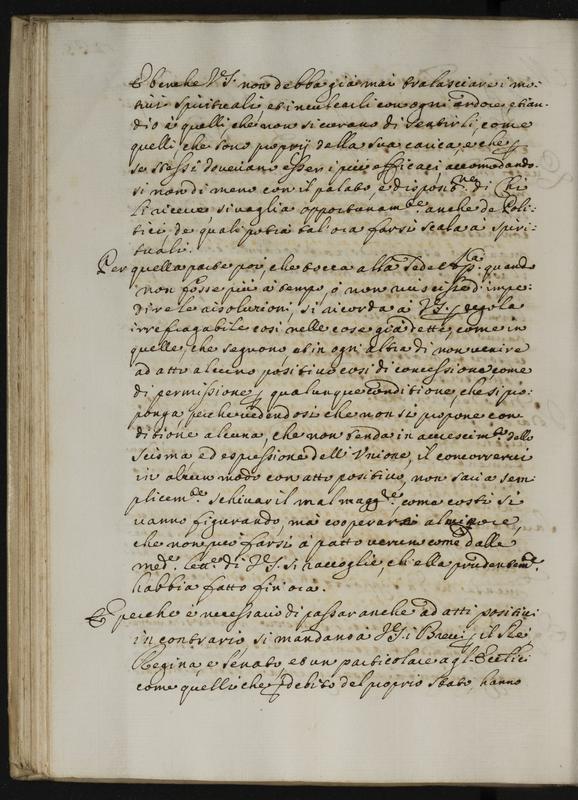 E benche V.S. non debba già mai tralasciare i mo-
tivi spirituali et inculcarli con ogni ardore etian-
dio à quelli che non si curano di sentirli, come
quelli che sono proprij della sua carica, e che per
se stessi doveriano esser i più efficaci, accomodando-
si non di meno con il palato, e dispositne. di chi
li riceve si vaglia opportunamte. anche de Poli-
tici de quali potrà tal'ora farsi scala a spiri-
tuali.
Per quella parte poi, che tocca alla Sede Aplica. quando
non fosse più à tempo, ò non riuscisse d'impe-
dire le risolutioni, si ricorda à V.S. per regola
irrefragabile così nelle cose già dette, come in
quelle, che seguono, et in ogni altra di non venire
ad atto alcuno positivo così di concessione come
di permissione per qualunque conditione, che si pro-
ponga, perche vedendosi che non si propone con-
ditione alcuna, che non tenda in accrescimto. dello
Scisma ed espressione dell'Unione, il concorrervi
in alcun modo con atto positivo, non saria sem-
plicemte. schivar il mal maggre. come costì si
vanno figurando, mà cooperare al minore,
che non può farsi à patto verun come dalle
medme. lettre. di V.S. si raccoglie, ch'ella prudentemte.
habbia fatto fin'ora.
E perche è necessario di passar anche ad atti positivi
in contrario si mandano à V.S. i Brevi per il Rè
Regina, e Senato, et un particolare agl'Ecclici
come quelli che per debito del proprio stato, hanno